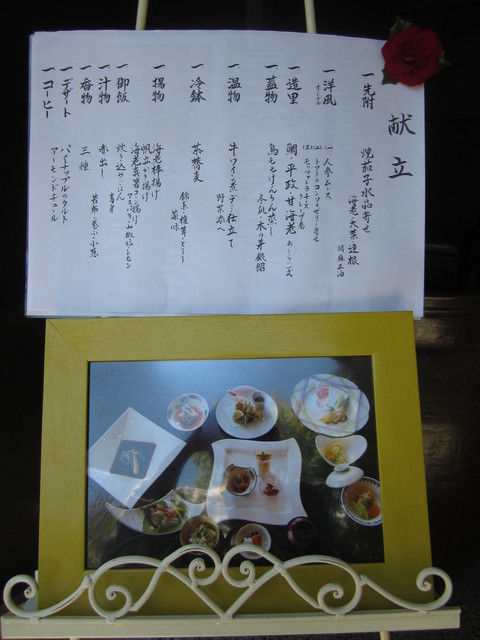 献立
一 先附
焼茄子水晶寄せ
海老 大葉 蓮根
胡麻
一 洋風
(一) 人参ムース
(二) トマトのコンソメゼリー寄せ
(三) モッツァレラチーズ
一 造里
鯛・平政・甘海老
あしらい一式
一 蓋物
鳥ももけんちん蒸し
冬瓜・木の芽 銀餡
一 温物
牛ワイン煮 デミ仕立て
野菜添へ
一 冷鉢
茶蕎麦
錦糸・椎茸・とろろ
薬味
一 揚物
海老棒揚げ
帆立かき揚げ
レモン
一 御飯
炊き込みごはん
一 汁物
赤出し
一 香物
三種
一 デザート
パイナップルのタルト
一 コーヒー